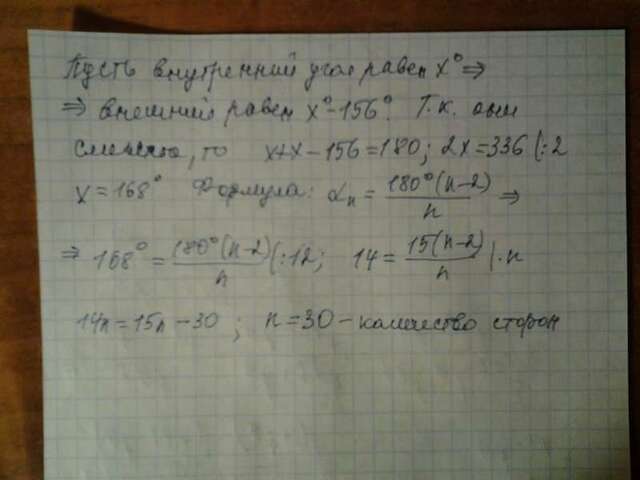 Пусть внутренний угол равен x° ⇒
⇒ внешний равен x°-156°. Т.к. они
смежные, то x+x-156=180; 2x=336 |:2
x=168° Формула: αₙ = 180°(n-2)/n ⇒
⇒ 168° = 180°(n-2)/n |:12; 14 = 15(n-2)/n |·n
14n=15n-30; n=30 - количество сторон